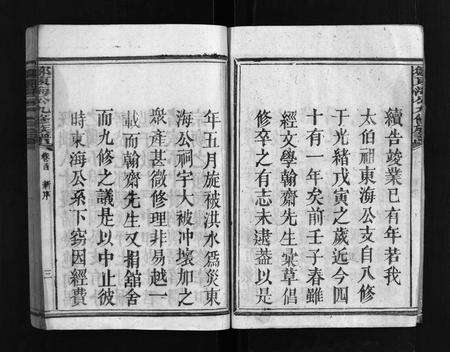 續告竣業已有年若我
太伯祖東海公支自八修
于光緒戊寅之歲近今四
十有一年矣前壬子春雖
經文學翰齋先生彙草倡
修卒之有志未逮葢以是
年五月旋被洪水爲災東
海公祠宇大被冲壞加之
衆產甚微修理非易越一
載而翰齋先生又捐舘舍
而九修之議是以中止彼
時東海公系下竊因經費
卷首
新序
三